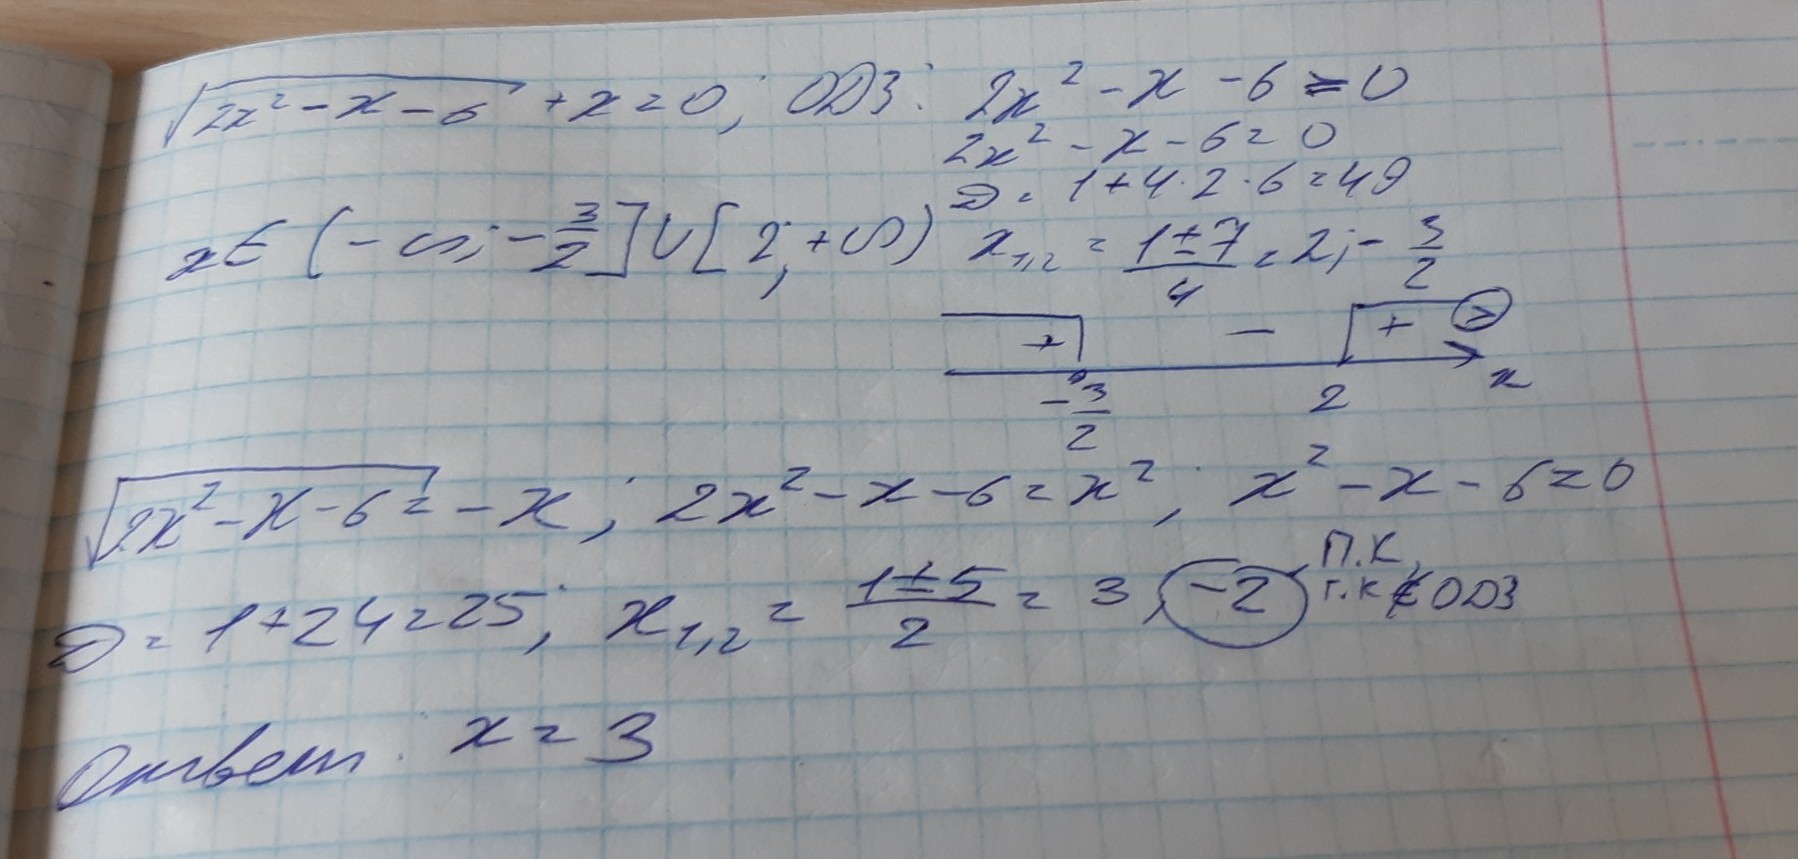 √(2x² - x - 6) + x = 0; ОДЗ: 2x² - x - 6 ≥ 0
2x² - x - 6 = 0
D = 1 + 4·2·6 = 49
x ∈ (-∞; -3/2] ∪ [2; +∞) x₁,₂ = (1 ± 7)/4 = 2; -3/2
+ - + ≥
-3/2 2 x
√(2x² - x - 6) = -x; 2x² - x - 6 = x²; x² - x - 6 = 0
D = 1 + 24 = 25; x₁,₂ = (1 ± 5)/2 = 3, -2 П.К. т.к ∉ ОДЗ
Ответ: x = 3